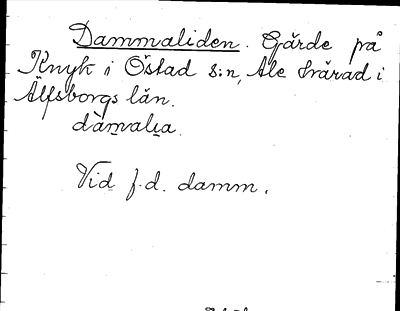 Dammaliden. Gärde på
Knyk i Östad s:n, Ale härad i
Älfsborgs län.
dàmalia.
Vid f.d. damm.